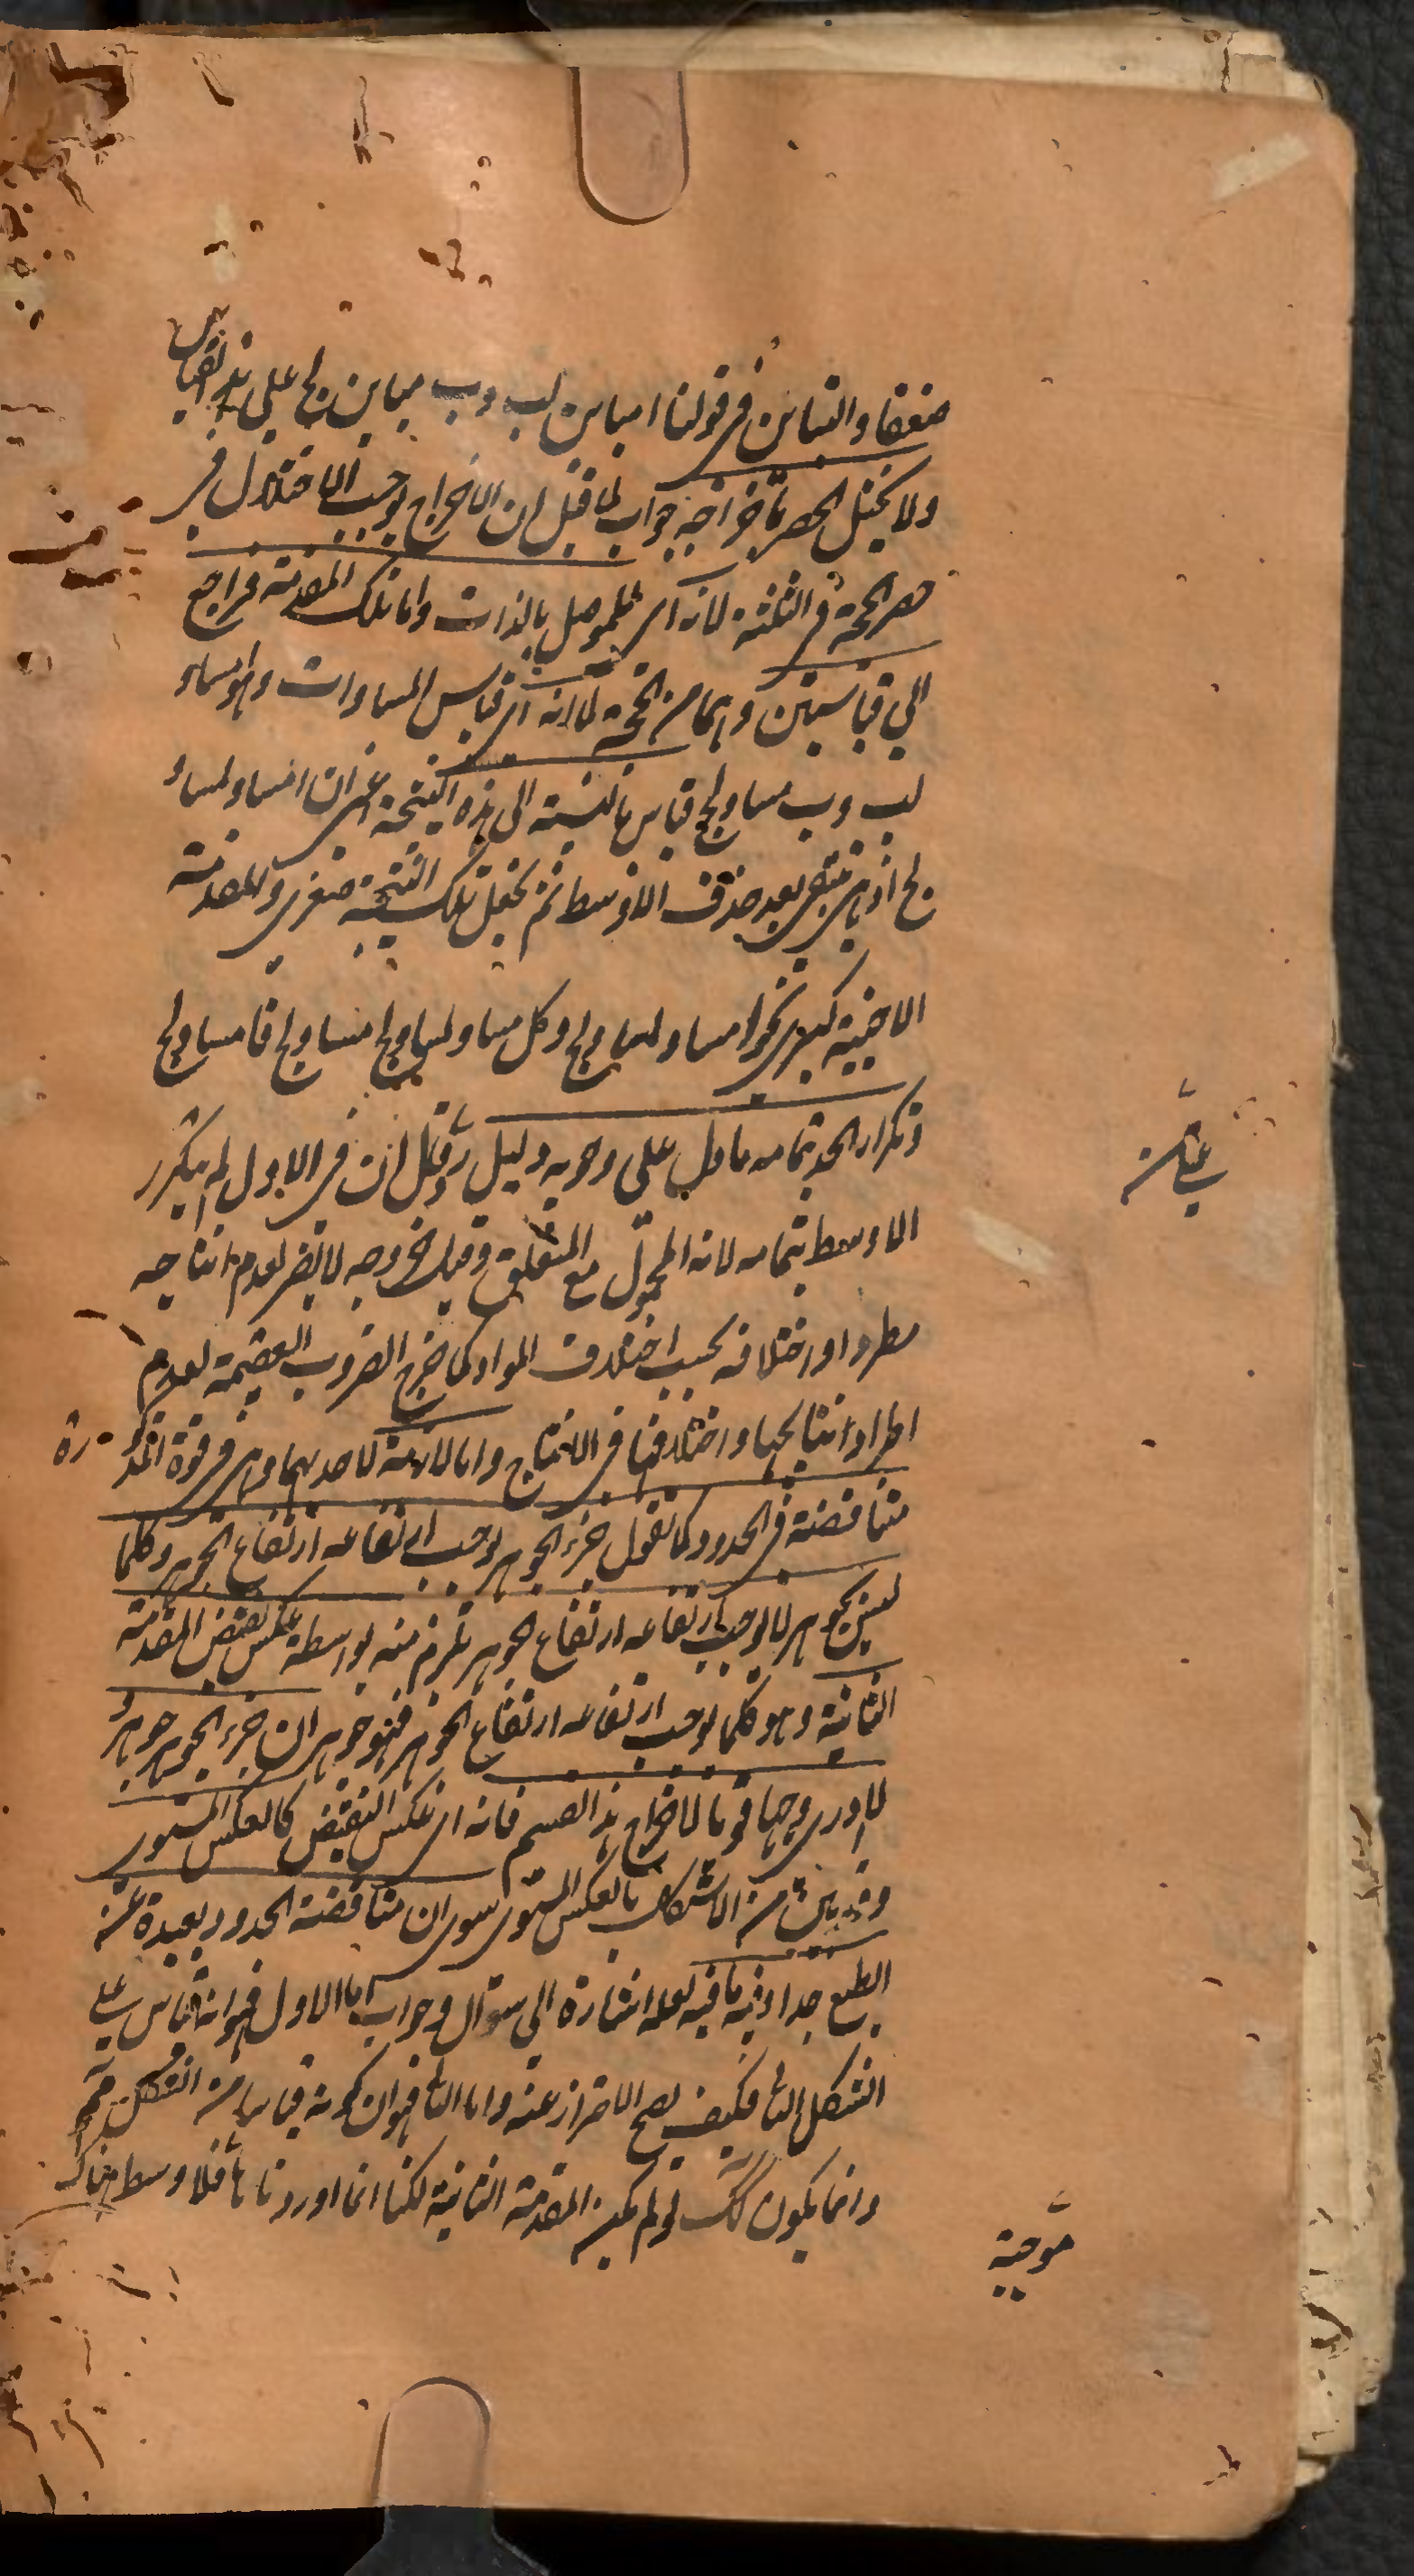 منعقا والتباين في قولنا ا مباين لب وب مباين لج على هذا القياس
ولا يختل الحصر باخراجه جواب لما قيل ان الاخراج يوجب الاختلال في
حصر الحجة في الثلثة لانه اى للموصل بالذات واما تلك المقدمة فراجع
الى قياسين وهما من الحجة لا انه اى قياس المساوات وهو ا مساو
لب وب مساو لج قياس بالنسبة الى هذه النتيجة اعنى ان ا مساو لمساو
لج اذ هى تبقى بعد حذف الاوسط ثم تجعل تلك النتيجة صغرى والمقدمة
الاجنبية كبرى نحو ا مساو لمساو لج وكل مساو لمساو لج مساو لج فا مساو لج
وتكرار الحد بتمامه ما دل على وجوبه دليل وقيل ان في الاول لم يتكرر
الاوسط بتمامه لانه المحمول مع المتعلق وقيل خروجه لا يضر لعدم انتاجه
مطردا و اختلافه بحسب اختلاف المواد كما خرج الضروب العقيمة لعدم
اطراد انتاجها و اختلافها في الانتاج واما لازمة لاحديهما وهى في قوة المذكورة
متناقضة في الحدود كما تقول جزء الجوهر يوجب ارتفاعه ارتفاع الجوهر وكلما
ليس بجوهر لا يوجب ارتفاعه ارتفاع الجوهر تلزم منه بواسطة عكس نقيض المقدمة
الثانية وهو كلما يوجب ارتفاعه ارتفاع الجوهر فهو جوهر ان جزء الجوهر جوهر
لا ادرى وجها قويا لاخراج هذا القسم فانه اى عكس النقيض كالعكس المستوى
وقد بين من الاشكال بالعكس المستوى سوى ان متناقضة الحدود بعيدة عن
الطبع جدا وفيه ما فيه لعله اشارة الى سؤال وجواب اما الاول فهو انه قياس على
الشكل الثانى فكيف يصح الاحتراز عنه واما الثانى فهو ان كونه قياسا من الشكل
وانما يكون كك لو لم يكن المقدمة الثانية لكنا انما اوردنا فلا وسط هناك
موجبة